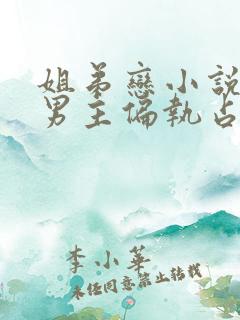 姐弟戀小説
男主偏執占
李小華
未经同意禁止转载